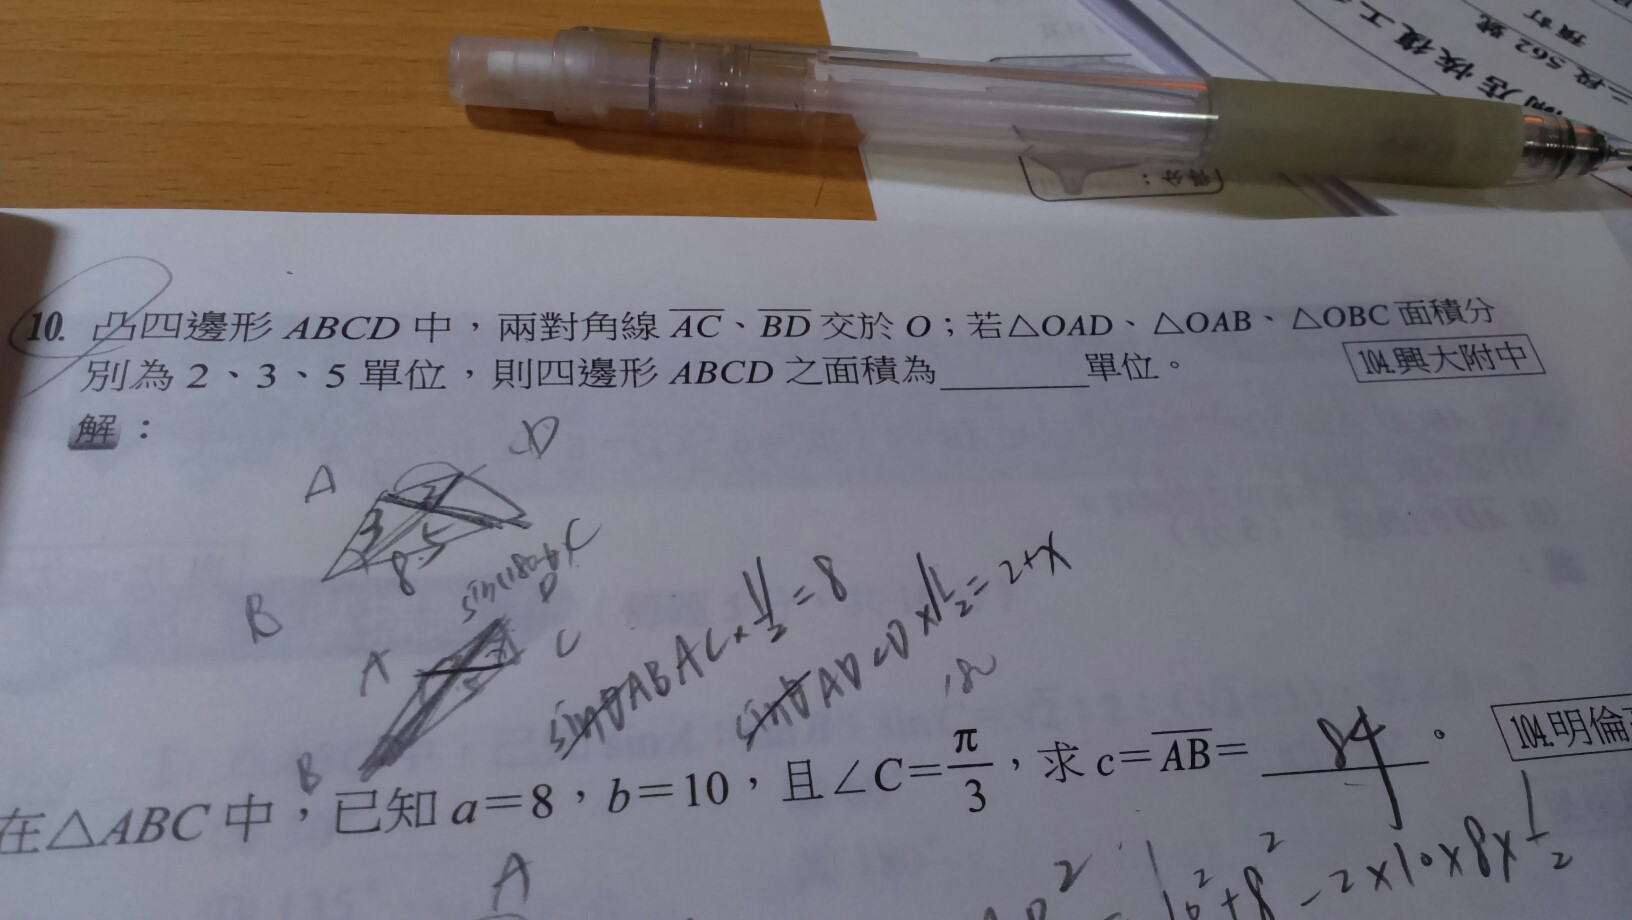 復工
三段 562 號
預訂
得分：
10. 凸四邊形 ABCD 中，兩對角線 AC、BD 交於 O；若△OAD、△OAB、△OBC 面積分
別為 2、3、5 單位，則四邊形 ABCD 之面積為________單位。 104.興大附中
解：
D
A
2
3
5
8
C
B
D
A
C
B
sinθ AB AC × 1/2 = 8
sinθ AD CD × 1/2 = 2+x
在△ABC 中，已知 a=8，b=10，且∠C=π/3，求 c=AB= 84 。 104.明倫
A
2 = 10²+8²-2×10×8×1/2